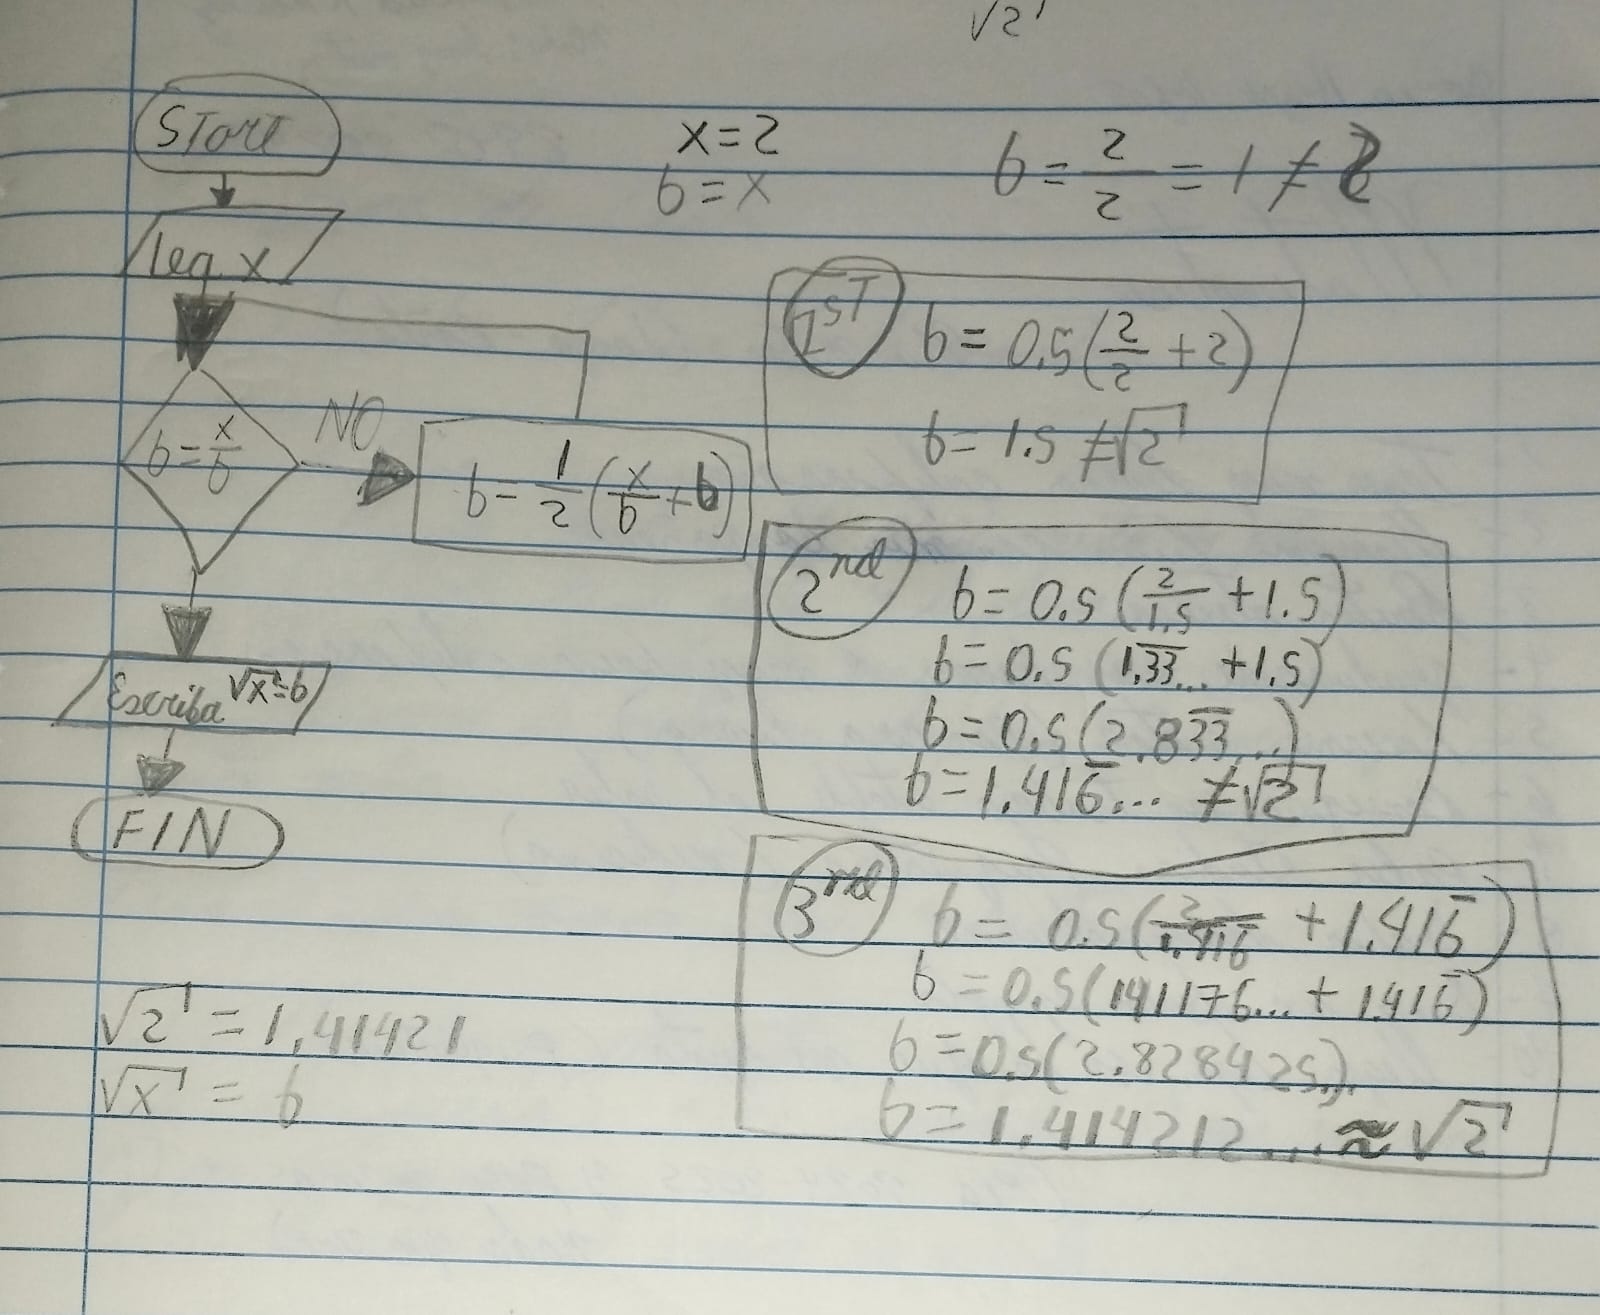 √2
Start
x=2
b=x
b = 2/2 = 1 ≠ 2
lea x
b = x/b
NO
b = 1/2 (x/b + b)
Escriba √x = b
FIN
√2 = 1,41421
√x = b
1ST b = 0.5(2/2 + 2)
b = 1.5 ≠ √2
2nd b = 0.5 (2/1.5 + 1.5)
b = 0.5 (1,3̅3̅... + 1.5)
b = 0.5(2.83̅3̅...)
b = 1.416̅... ≠ √2
3rd b = 0.5(2/1.416̅ + 1.416̅)
b = 0.5(141176... + 1.416̅)
b = 0.5(2.828425...)
b = 1.414212... ≈ √2